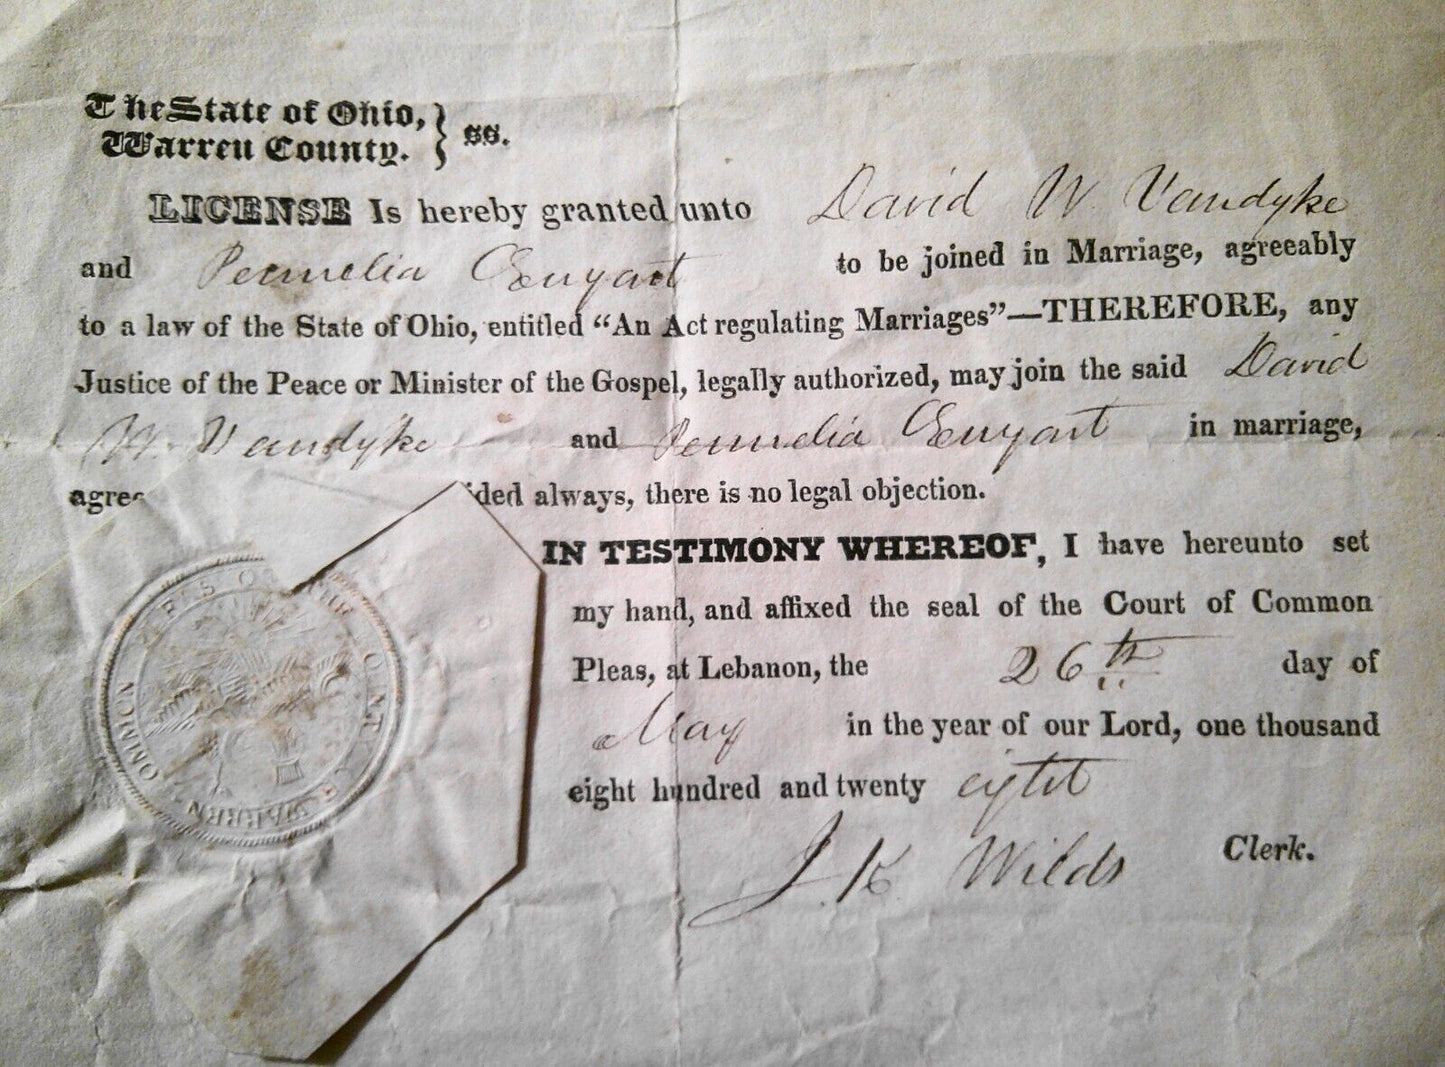 The State of Ohio,
Warren County. } ss.
LICENSE Is hereby granted unto David W. Vandyke
and Permelia Enyart to be joined in Marriage, agreeably
to a law of the State of Ohio, entitled “An Act regulating Marriages”—THEREFORE, any
Justice of the Peace or Minister of the Gospel, legally authorized, may join the said David
W. Vandyke and Permelia Enyart in marriage,
agree ided always, there is no legal objection.
IN TESTIMONY WHEREOF, I have hereunto set
my hand, and affixed the seal of the Court of Common
Pleas, at Lebanon, the 26th day of
May in the year of our Lord, one thousand
eight hundred and twenty eight
J. K. Wilds Clerk.
OMMON
WARREN